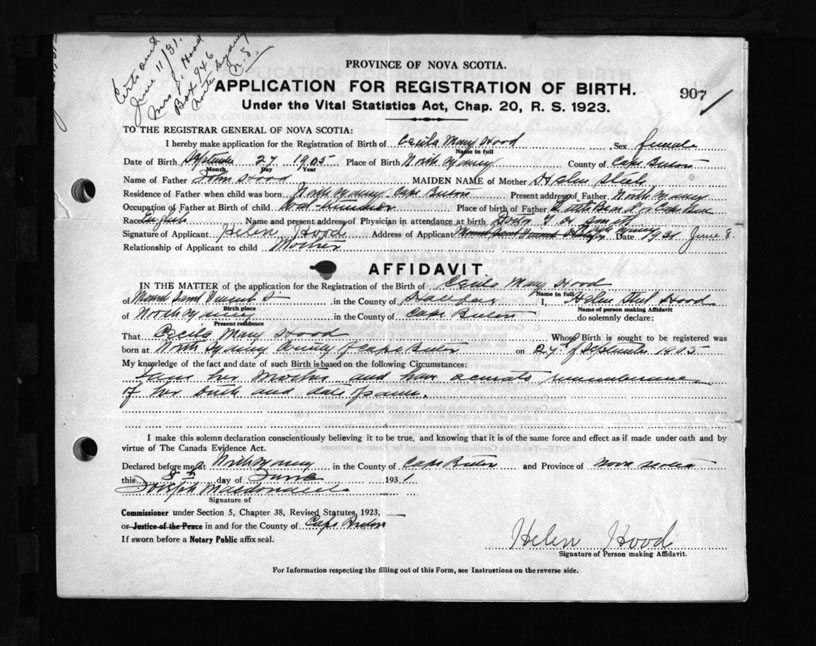 June 11/31.
Mrs J. Hood
Box 946
North Sydney
N. S.
PROVINCE OF NOVA SCOTIA.
907
APPLICATION FOR REGISTRATION OF BIRTH.
Under the Vital Statistics Act, Chap. 20, R. S. 1923.
TO THE REGISTRAR GENERAL OF NOVA SCOTIA:
I hereby make application for the Registration of Birth of Cecila Mary Hood Sex female
Name in full
Date of Birth September 27 1905 Place of Birth North Sydney County of Cape Breton
Month Day Year
Name of Father John Hood MAIDEN NAME of Mother Helen
Residence of Father when child was born North Sydney Cape Breton Present address of Father North Sydney
Occupation of Father at Birth of child Place of birth of Father
Race English Name and present address of Physician in attendance at birth Doctor
Signature of Applicant Helen Hood Address of Applicant Date 1931 June 8
Relationship of Applicant to child Mother
AFFIDAVIT.
IN THE MATTER of the application for the Registration of the Birth of Cecila Mary Hood
Name in full
of Mount Saint Vincent in the County of Halifax I, Helen Hood
Birth place Name of person making Affidavit
of North Sydney in the County of Cape Breton do solemnly declare:
Present residence
That Cecila Mary Hood Whose Birth is sought to be registered was
born at North Sydney County of Cape Breton on 27th of September 1905
My knowledge of the fact and date of such Birth is based on the following Circumstances:
her Mother and have accurate rememberance
of her birth and date of same.
I make this solemn declaration conscientiously believing it to be true, and knowing that it is of the same force and effect as if made under oath and by
virtue of The Canada Evidence Act.
Declared before me at North Sydney in the County of Cape Breton and Province of Nova Scotia
this 8th day of June 1931
Joseph Macdonald
Signature of
Commissioner under Section 5, Chapter 38, Revised Statutes, 1923,
or Justice of the Peace in and for the County of Cape Breton
If sworn before a Notary Public affix seal.
Helen Hood
Signature of Person making Affidavit.
For Information respecting the filling out of this Form, see Instructions on the reverse side.